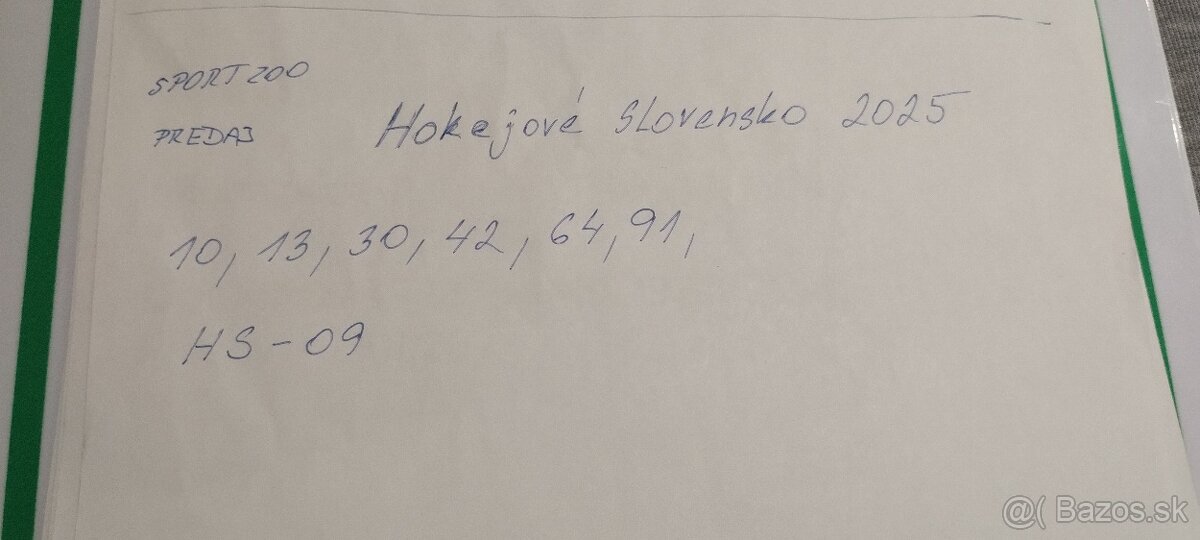 SPORTZOO
PREDAJ
Hokejové Slovensko 2025
10, 13, 30, 42, 64, 91,
HS-09
@( Bazos.sk